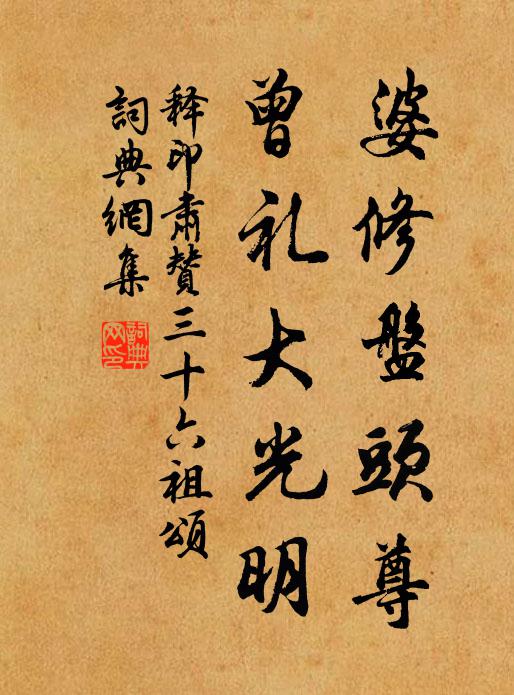 婆修盤頭尊
曾礼大光明
释印肅贊三十六祖頌
詞典網集